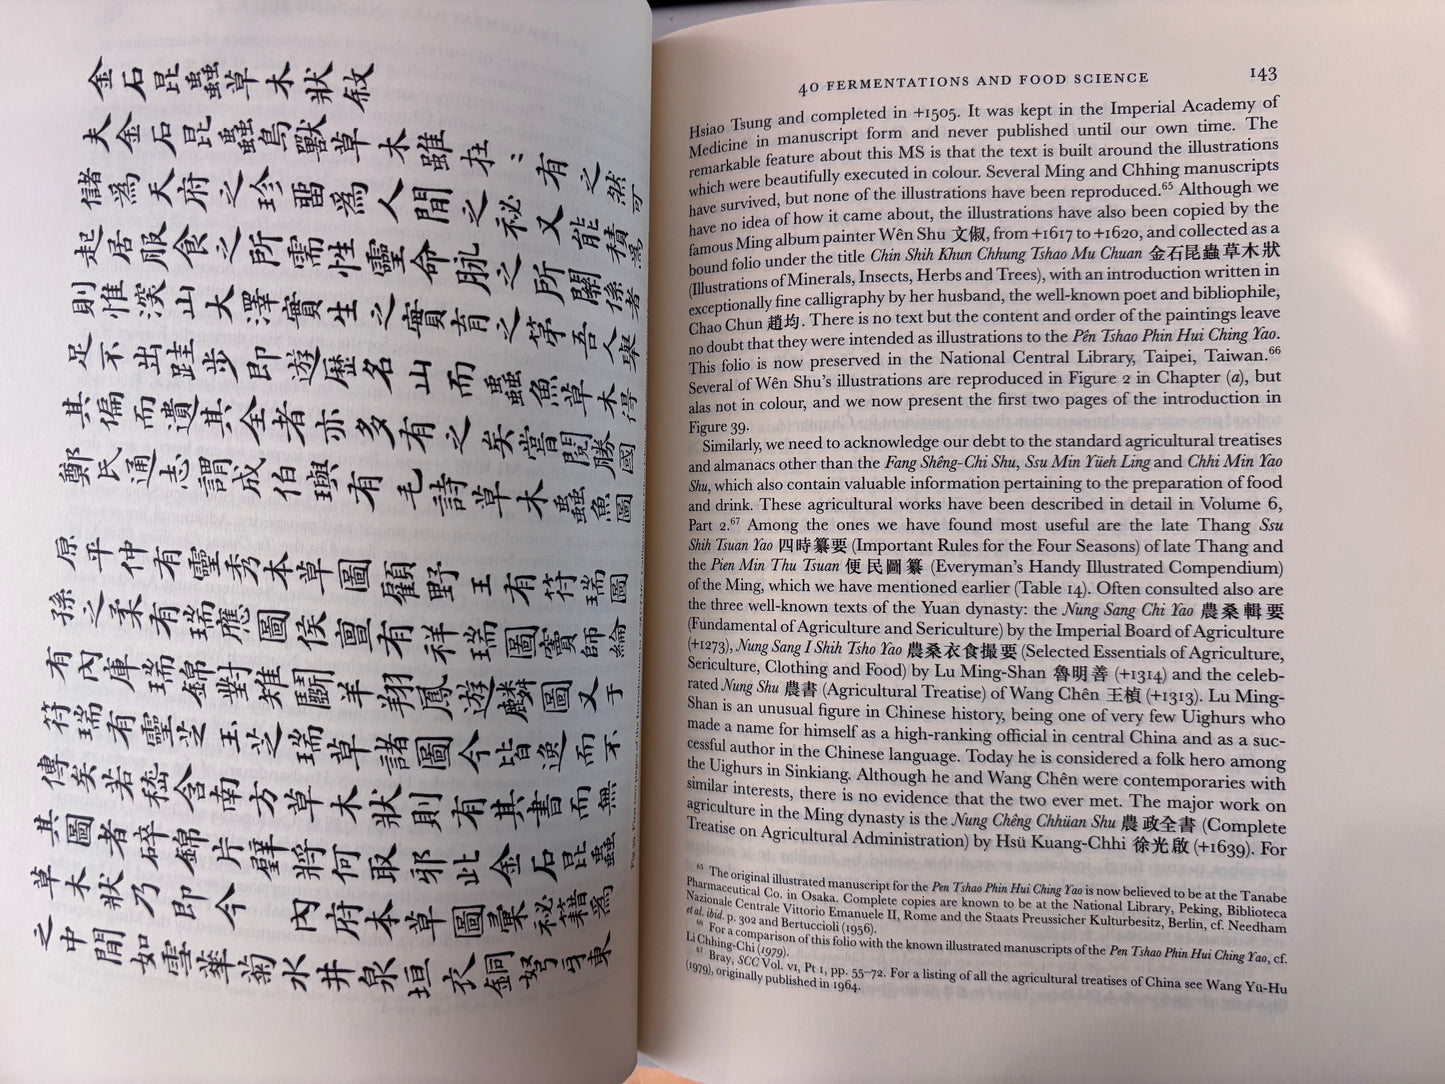 金石昆蟲草木狀敘
夫金石昆蟲鳥獸草木雖在〻有之然可
儲為天府之珍畱為人閒之秘又能積為
起居服食之所需性靈命脈之所關係者
則惟深山大澤實生之實育之第吾人舉
足不出跬步即遊歷名山而蟲魚草木得
其偏而遺其全者亦多有之矣嘗閱勝國
鄭氏通志謂成伯璵有毛詩草木蟲魚圖
原平仲有靈秀本草圖顧野王有符瑞圖
孫之柔有瑞應圖侯亶有祥瑞圖竇師綸
有內庫瑞錦對雉鬬羊翔鳳遊麟圖又于
符瑞有靈芝玉芝瑞草諸圖今皆逸而不
傳矣若嵇含南方草木狀則有其書而無
其圖者碎錦片璧將何取邪此金石昆蟲
草木狀乃即今 內府本草圖彙秘籍為
之中閒如雪華菊水井泉垣衣銅弩牙東
Fig 39. First two pages of the Introduction
40 FERMENTATIONS AND FOOD SCIENCE 143
Hsiao Tsung and completed in +1505. It was kept in the Imperial Academy of
Medicine in manuscript form and never published until our own time. The
remarkable feature about this MS is that the text is built around the illustrations
which were beautifully executed in colour. Several Ming and Chhing manuscripts
have survived, but none of the illustrations have been reproduced.65 Although we
have no idea of how it came about, the illustrations have also been copied by the
famous Ming album painter Wên Shu 文俶, from +1617 to +1620, and collected as a
bound folio under the title Chin Shih Khun Chhung Tshao Mu Chuan 金石昆蟲草木狀
(Illustrations of Minerals, Insects, Herbs and Trees), with an introduction written in
exceptionally fine calligraphy by her husband, the well-known poet and bibliophile,
Chao Chun 趙均. There is no text but the content and order of the paintings leave
no doubt that they were intended as illustrations to the Pên Tshao Phin Hui Ching Yao.
This folio is now preserved in the National Central Library, Taipei, Taiwan.66
Several of Wên Shu's illustrations are reproduced in Figure 2 in Chapter (a), but
alas not in colour, and we now present the first two pages of the introduction in
Figure 39.
Similarly, we need to acknowledge our debt to the standard agricultural treatises
and almanacs other than the Fang Shêng-Chi Shu, Ssu Min Yüeh Ling and Chhi Min Yao
Shu, which also contain valuable information pertaining to the preparation of food
and drink. These agricultural works have been described in detail in Volume 6,
Part 2.67 Among the ones we have found most useful are the late Thang Ssu
Shih Tsuan Yao 四時纂要 (Important Rules for the Four Seasons) of late Thang and
the Pien Min Thu Tsuan 便民圖纂 (Everyman's Handy Illustrated Compendium)
of the Ming, which we have mentioned earlier (Table 14). Often consulted also are
the three well-known texts of the Yuan dynasty: the Nung Sang Chi Yao 農桑輯要
(Fundamental of Agriculture and Sericulture) by the Imperial Board of Agriculture
(+1273), Nung Sang I Shih Tsho Yao 農桑衣食撮要 (Selected Essentials of Agriculture,
Sericulture, Clothing and Food) by Lu Ming-Shan 魯明善 (+1314) and the celeb-
rated Nung Shu 農書 (Agricultural Treatise) of Wang Chên 王楨 (+1313). Lu Ming-
Shan is an unusual figure in Chinese history, being one of very few Uighurs who
made a name for himself as a high-ranking official in central China and as a suc-
cessful author in the Chinese language. Today he is considered a folk hero among
the Uighurs in Sinkiang. Although he and Wang Chên were contemporaries with
similar interests, there is no evidence that the two ever met. The major work on
agriculture in the Ming dynasty is the Nung Chêng Chhüan Shu 農政全書 (Complete
Treatise on Agricultural Administration) by Hsü Kuang-Chhi 徐光啟 (+1639). For
65 The original illustrated manuscript for the Pen Tshao Phin Hui Ching Yao is now believed to be at the Tanabe
Pharmaceutical Co. in Osaka. Complete copies are known to be at the National Library, Peking, Biblioteca
Nazionale Centrale Vittorio Emanuele II, Rome and the Staats Preussicher Kulturbesitz, Berlin, cf. Needham
et al. ibid. p. 302 and Bertuccioli (1956).
66 For a comparison of this folio with the known illustrated manuscripts of the Pen Tshao Phin Hui Ching Yao, cf.
Li Chhing-Chi (1979).
67 Bray, SCC Vol. VI, Pt 1, pp. 55–72. For a listing of all the agricultural treatises of China see Wang Yü-Hu
(1979), originally published in 1964.